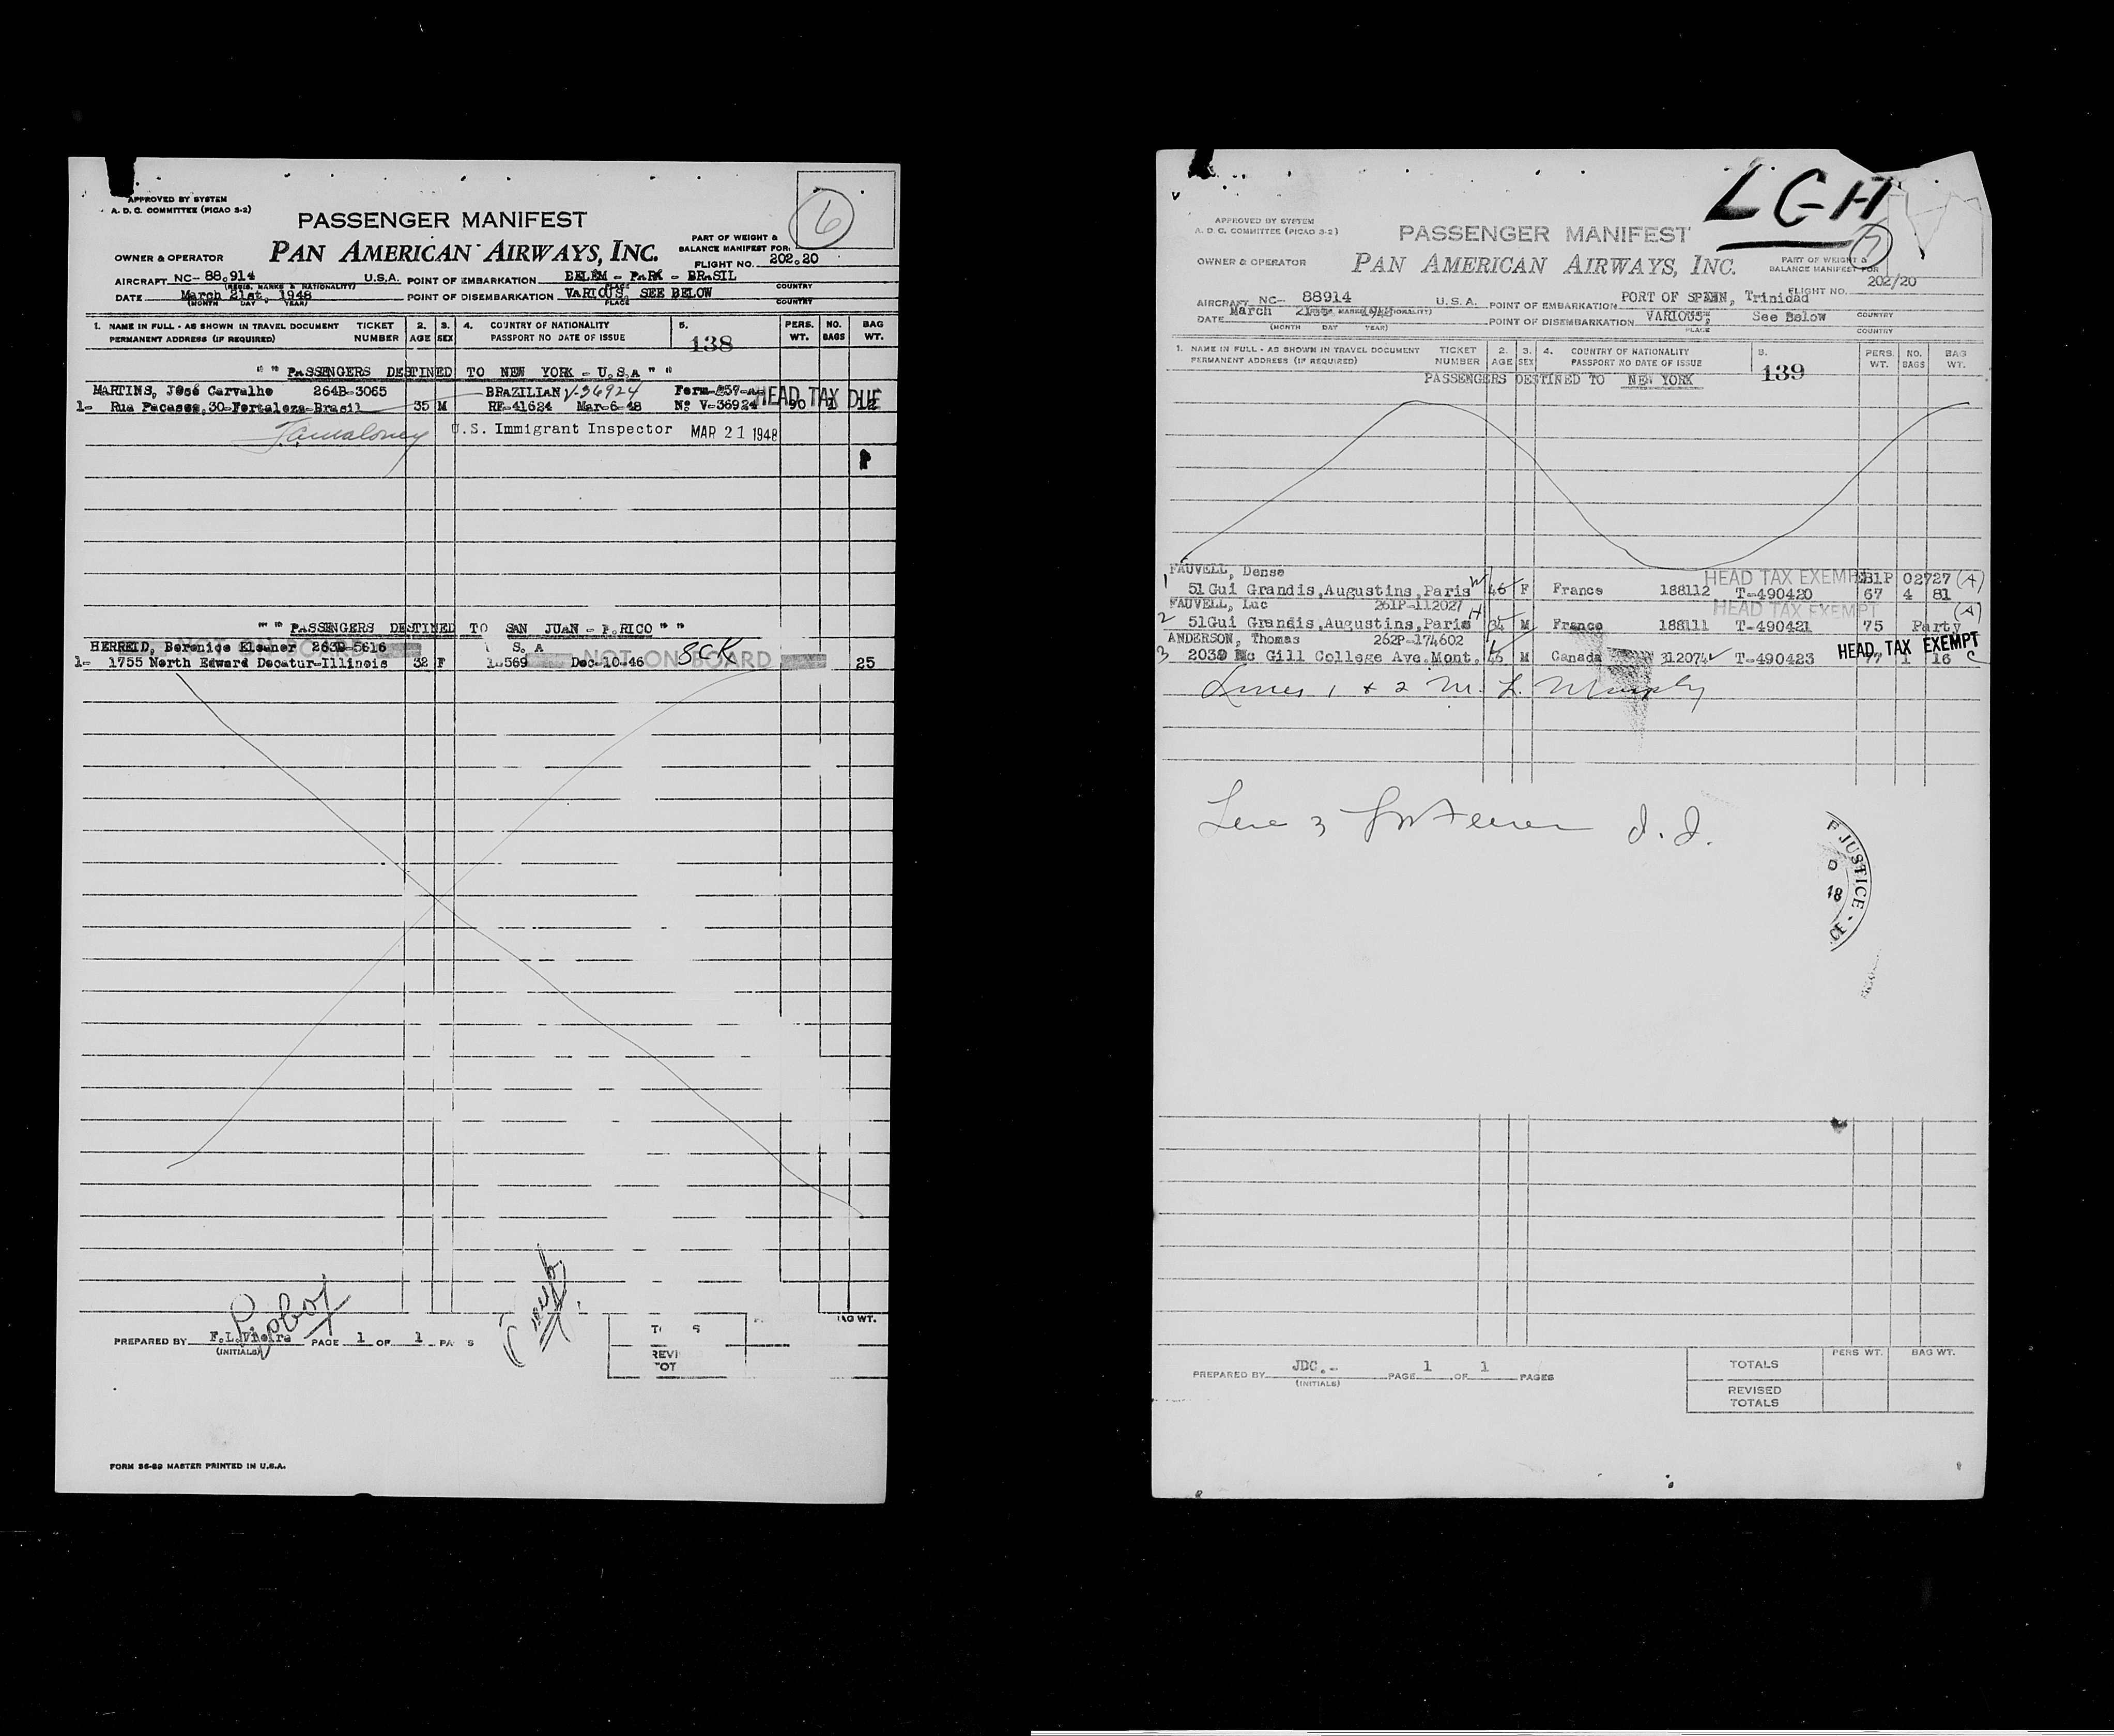 APPROVED BY SYSTEM
A. D. C. COMMITTEE (PICAO S-2)
6
PASSENGER MANIFEST
PAN AMERICAN AIRWAYS, INC.
PART OF WEIGHT &
BALANCE MANIFEST FOR:
OWNER & OPERATOR
FLIGHT NO. 202.20
AIRCRAFT NC- 88.914 U.S.A. POINT OF EMBARKATION BELEM - PARA - BRASIL
(REGIS. MARKS & NATIONALITY) PLACE COUNTRY
DATE March 21st, 1948 POINT OF DISEMBARKATION VARIOUS, SEE BELOW
(MONTH DAY YEAR) PLACE COUNTRY
1. NAME IN FULL - AS SHOWN IN TRAVEL DOCUMENT TICKET 2. 3. 4. COUNTRY OF NATIONALITY 5. PERS. NO. BAG
PERMANENT ADDRESS (IF REQUIRED) NUMBER AGE SEX PASSPORT NO DATE OF ISSUE 138 WT. BAGS WT.
" " PASSENGERS DESTINED TO NEW YORK - U.S.A " "
MARTINS, José Carvalho 264B-3065 BRAZILIAN V-36924 Form-257-a HEAD TAX DUE
1- Rua Pacasos, 30-Fortaleza-Brasil 35 M RF-41624 Mar-6-48 Nº V-36924 90 1 12
U.S. Immigrant Inspector MAR 21 1948
" " PASSENGERS DESTINED TO SAN JUAN - P.RICO " "
HERREID, Berenice Eleanor 263B-5616 S. A SCK
NOT ON BOARD NOT ON BOARD
1- 1755 North Edward Decatur-Illinois 32 F 1.569 Dec-10-46 25
PREPARED BY F.L.Vieira PAGE 1 OF 1 PA S
(INITIALS)
BAG WT.
REVI
TOT
FORM 36-89 MASTER PRINTED IN U.S.A.
LGH
7
APPROVED BY SYSTEM
A. D. C. COMMITTEE (PICAO S-2)
PASSENGER MANIFEST
PAN AMERICAN AIRWAYS, INC.
PART OF WEIGHT &
BALANCE MANIFEST FOR
OWNER & OPERATOR
FLIGHT NO. 202/20
AIRCRAFT NC- 88914 U.S.A. POINT OF EMBARKATION PORT OF SPAIN, Trinidad
DATE March 21st 1948 POINT OF DISEMBARKATION VARIOUS, See Below COUNTRY
(MONTH DAY YEAR) PLACE COUNTRY
1. NAME IN FULL - AS SHOWN IN TRAVEL DOCUMENT TICKET 2. 3. 4. COUNTRY OF NATIONALITY 5. PERS. NO. BAG
PERMANENT ADDRESS (IF REQUIRED) NUMBER AGE SEX PASSPORT NO DATE OF ISSUE 139 WT. BAGS WT.
PASSENGERS DESTINED TO NEW YORK
FAUVELL, Dense HEAD TAX EXEMPT 02727 (A)
1 51 Gui Grandis, Augustins, Paris 46 F France 188112 T-490420 67 4 81
FAUVELL, Luc 261P-112027 HEAD TAX EXEMPT (A)
2 51Gui Grandis, Augustins, Paris M France 188111 T-490421 75 Party
ANDERSON, Thomas 262P-174602 HEAD TAX EXEMPT
3 2039 Mc Gill College Ave. Mont. M Canada 312074 T-490423 77 1 16 C
Lines 1 & 2 M. L. Murphy
Line 3
F JUSTICE
18
CE
PREPARED BY JDC.- PAGE 1 OF 1 PAGES
(INITIALS)
PERS WT. BAG WT.
TOTALS
REVISED
TOTALS